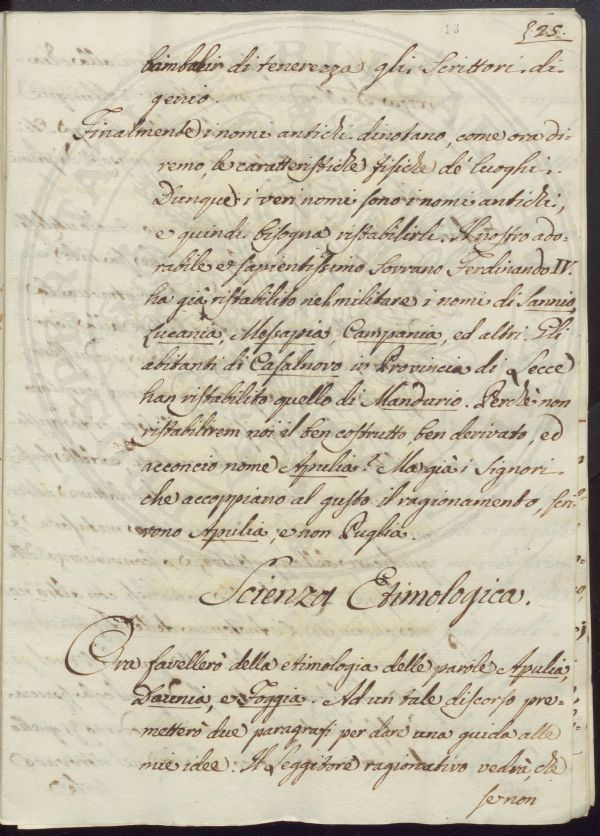 18
§25.
bamboleir di tenerezza gli Scrittori di
genio.
Finalmente i nomi antichi dinotano, come ora di-
remo, le caratteristiche fisiche de' luoghi.
Dunque i veri nomi sono i nomi antichi,
e quindi bisogna ristabilirli. Il nostro ado-
rabile e sapientissimo Sovrano Ferdinando IV.
ha già ristabilito nel militare i nomi di Sannio,
Lucania, Messapia, Campania, ed altri. Gli
abitanti di Casalnovo in Provincia di Lecce
han ristabilito quello di Mandurio. Perchè non
ristabilirem noi il ben costrutto ben derivato, ed
acconcio nome Apulia? Ma già i Signori
che accoppiano al gusto il ragionamento, scri-
vono Apulia, e non Puglia.
Scienza Etimologica.
Ora favellerò della etimologia delle parole Apulia,
Daunia, e Foggia. Ad un tale discorso pre-
metterò due paragrafi per dare una guida alle
mie idee. Il Leggitore ragionativo vedrà, che
se non